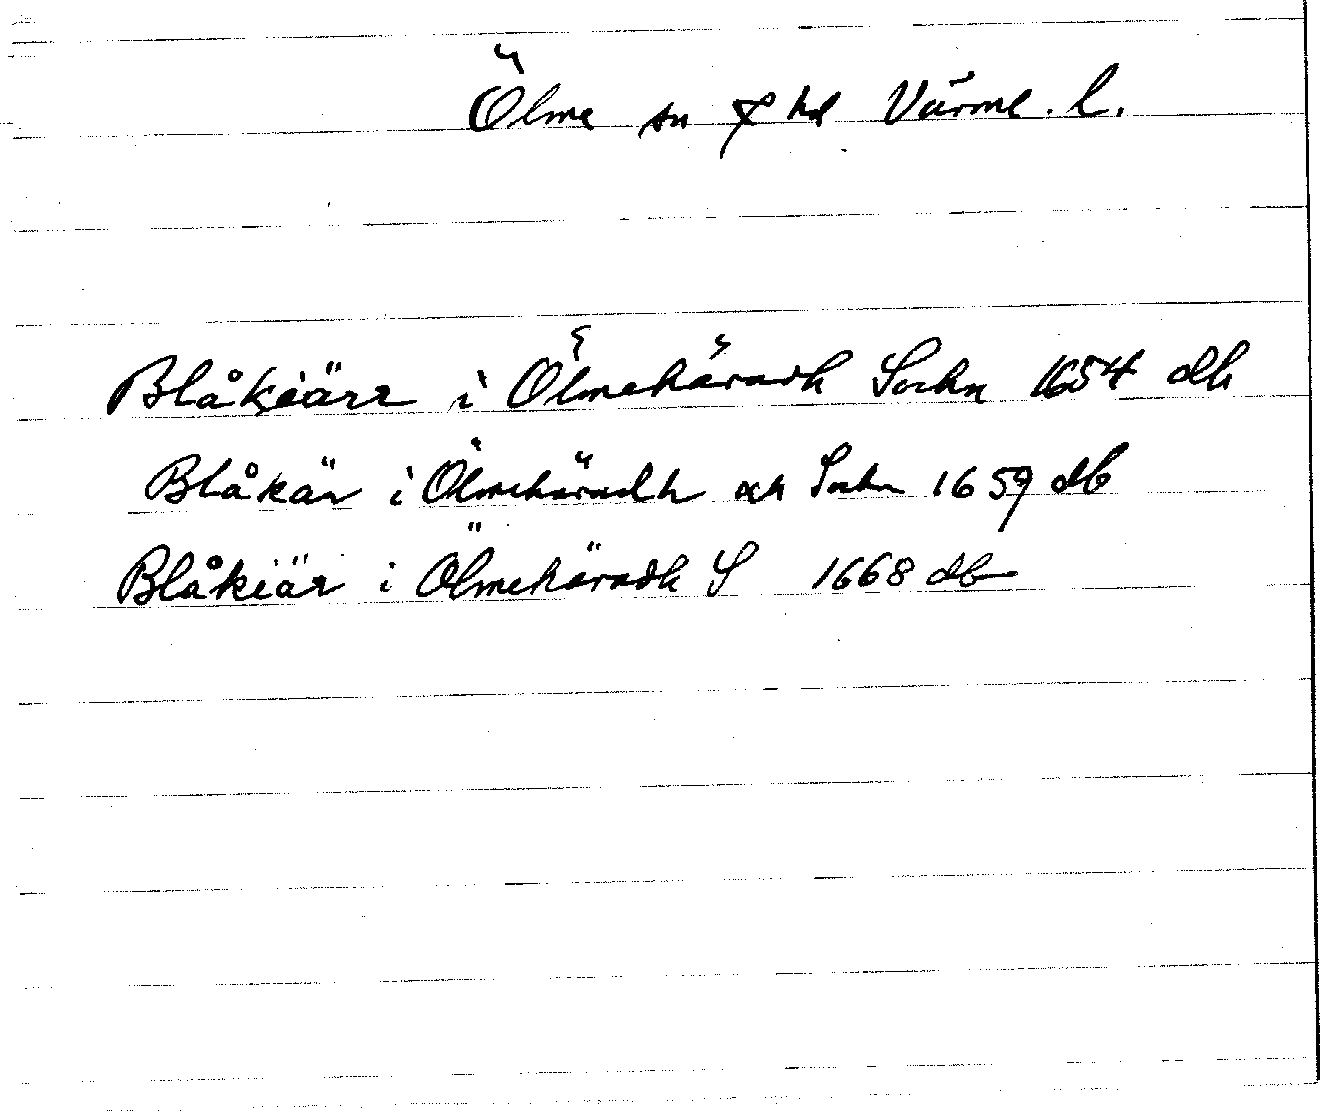 Ölme sn o hd Värml. l.
Blåkiärr i Ölmehäradh Sochn 1654 db
Blåkär i Ölmehäradh och Sochn 1659 db
Blåkiär i Ölmehäradh S 1668 db